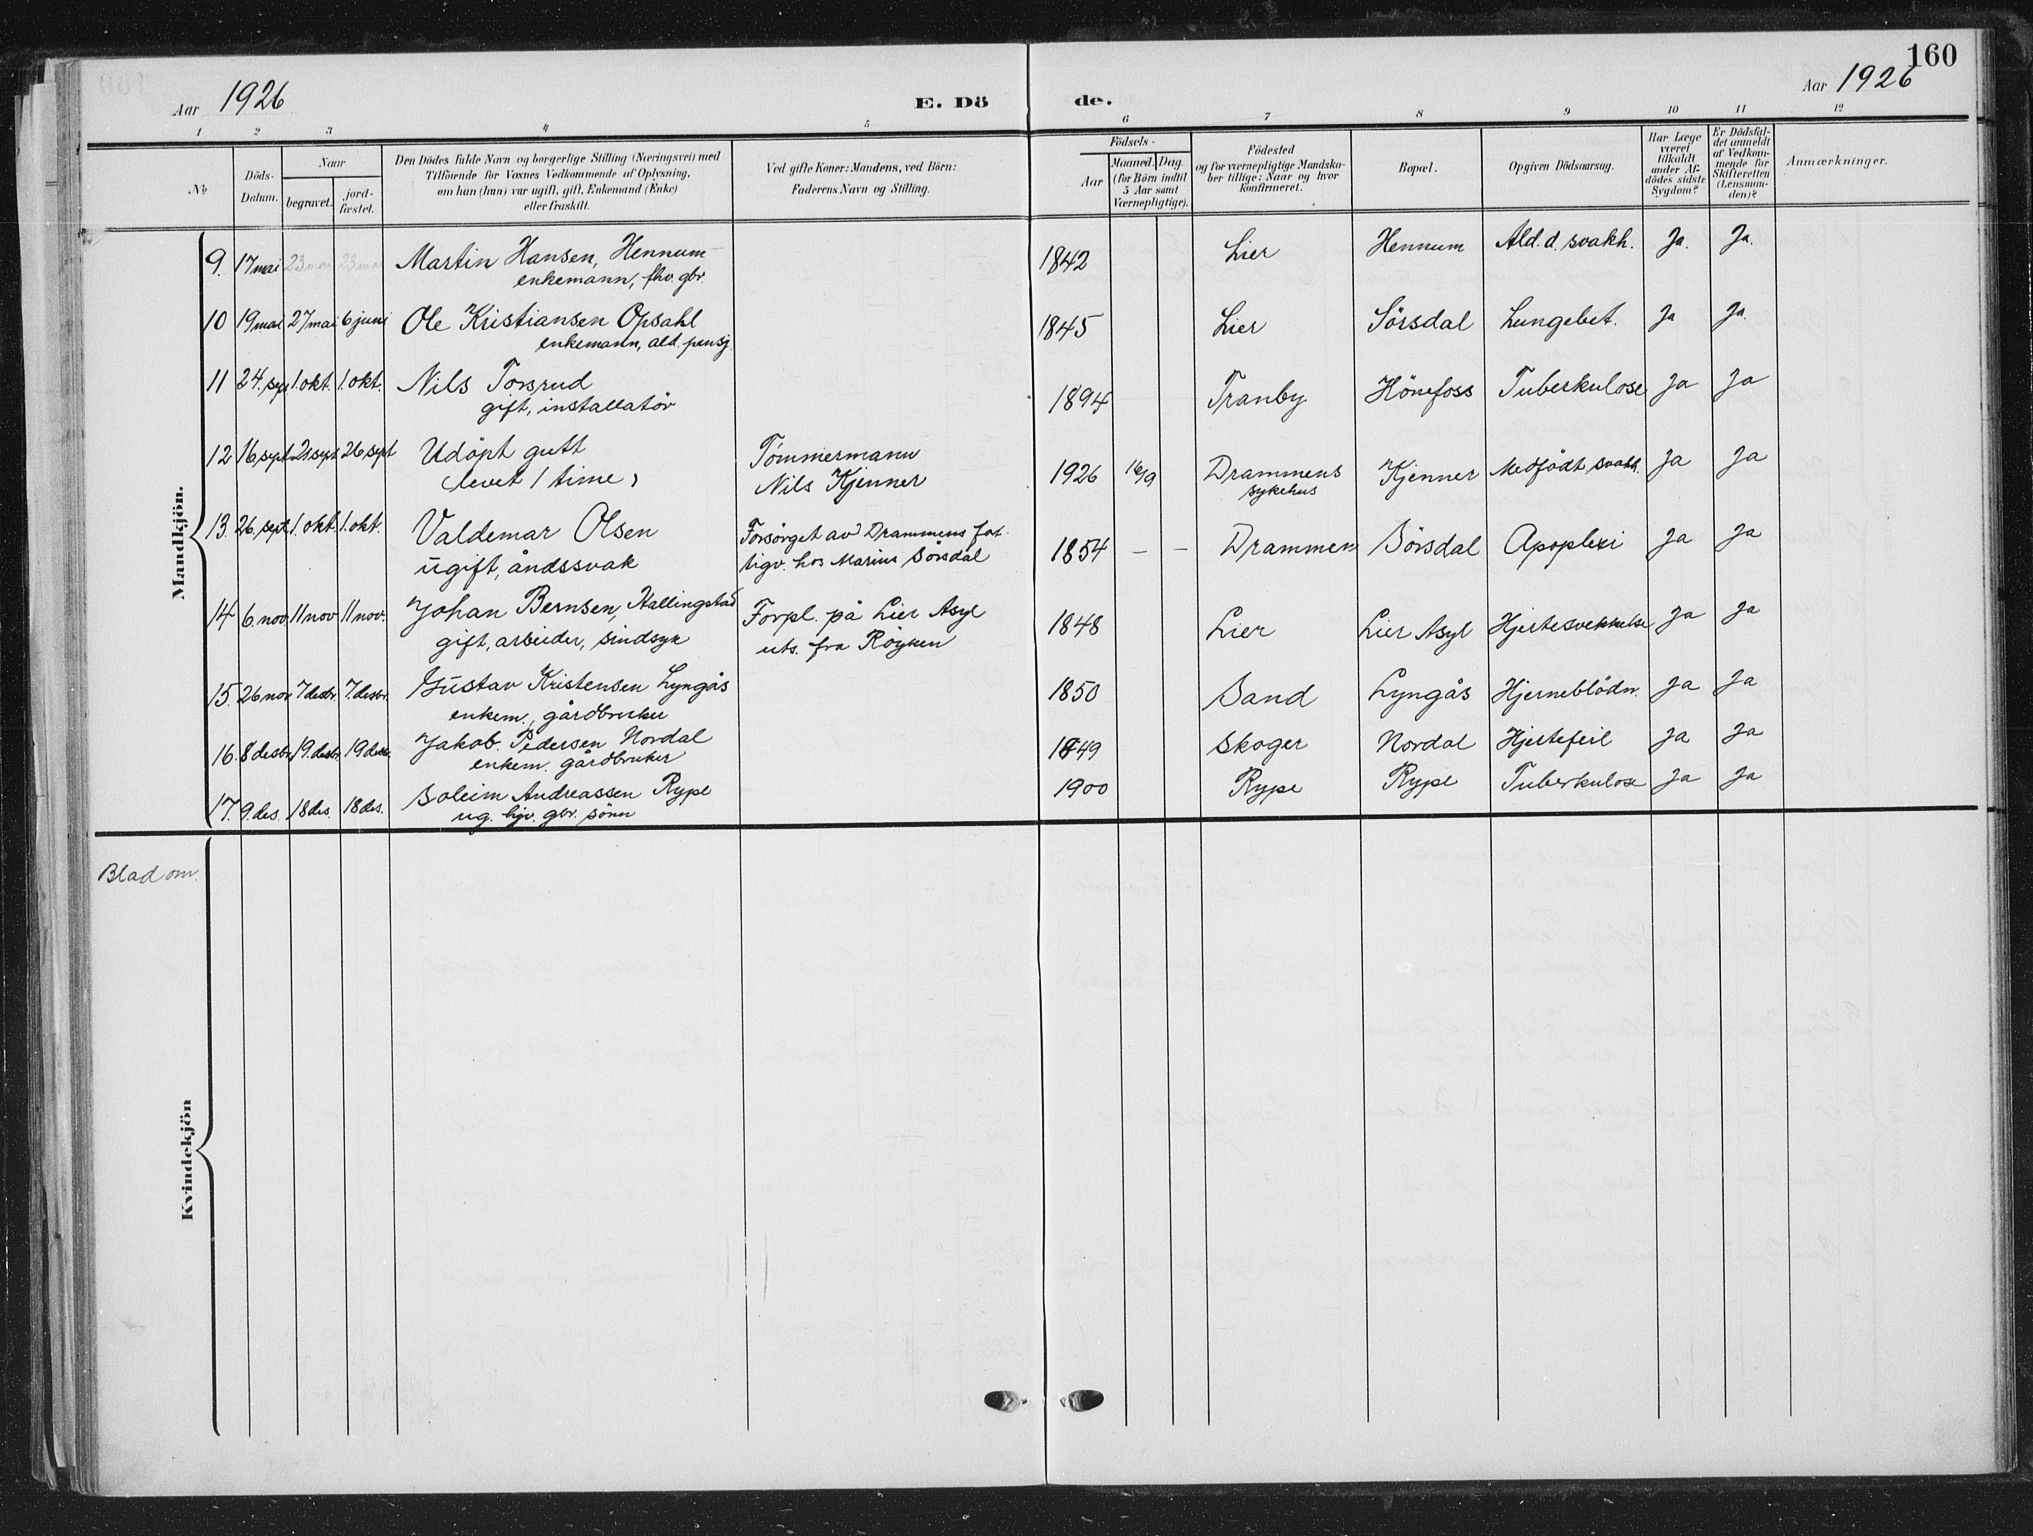 160
Aar 1926
E. Dö de.
Aar 1926
1 2 3 4 5 6 7 8 9 10 11 12
№
Döds-
Datum.
Naar
begravet.
jord-
fæstet.
Den Dödes fulde Navn og borgerlige Stilling (Næringsvei) med
Tilföiende for Voxnes Vedkommende af Oplysning,
om han (hun) var ugift, gift, Enkemand (Enke)
eller fraskilt.
Ved gifte Koner: Mandens, ved Börn:
Faderens Navn og Stilling.
Födsels-
Aar
Maaned. Dag.
(for Börn indtil
5 Aar samt
Værnepligtige).
Födested
og for værnepligtige Mandska-
ber tillige: Naar og hvor
konfirmeret.
Bopæl.
Opgiven Dödsaarsag.
Har Læge
været
tilkaldt
under Af-
dödes sidste
Sygdom?
Er Dödsfal-
det anmeldt
af Vedkom-
mende for
Skifteretten
(Lensman-
den)?
Anmærkninger.
Mandkjön.
9. 17 mai 23 mai 23 mai Martin Hansen, Hennum 1842 Lier Hennum Ald. d. svakh. Ja. Ja.
enkemann, fhv. gbr.
10 19 mai 27 mai 6 juni Ole Kristiansen Opsahl 1845 Lier Sörsdal Lungebet. Ja Ja.
enkemann, ald. pensj.
11 24, sept 1. okt. 1. okt. Nils Torsrud 1894 Tranby Hönefoss Tuberkulose Ja Ja
gift, installatör
12 16, sept 21. sept 26, sept Udöpt gutt Tømmermann 1926 16/9 Drammens Kjenner Medfödt svakh. Ja Ja
levet 1 time, Nils Kjenner sykehus
13. 26, sept. 1. okt. 1. okt. Valdemar Olsen Forsörget av Drammens fat- 1854 – – Drammen Sörsdal Apoplexi Ja Ja
ugift, åndssvak tigv. hos Marius Sörsdal
14 6. nov 11 nov 11 nov. Johan Bernsen, Hallingstad Forpl. på Lier Asyl 1848 Lier Lier Asyl Hjertesvekkelse Ja Ja
gift, arbeider, sindsyk uts. fra Röyken
15. 26 nov 7 desbr. 7. desbr. Gustav Kristensen Lyngås 1850 Sand Lyngås Hjerneblödn. Ja Ja
enkem., gårdbruker
16. 8 desbr. 19. desbr. 19 desbr. Jakob. Pedersen Nordal 1849 Skoger Nordal Hjertefeil Ja Ja
enkem. gårdbruker
17. 9. des. 18 des. 18 des. Soleim Andreassen Rype 1900 Rype Rype Tuberkulose Ja Ja
ug. hjv. gbr. sönn
Blad om.
Kvindekjön